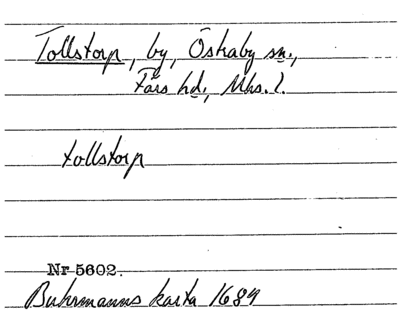 Tollstorp, by, Öskaby sn.,
Färs hd, Mhs. l.
tollstorp
Nr 5602.
Buhrmanns karta 1684